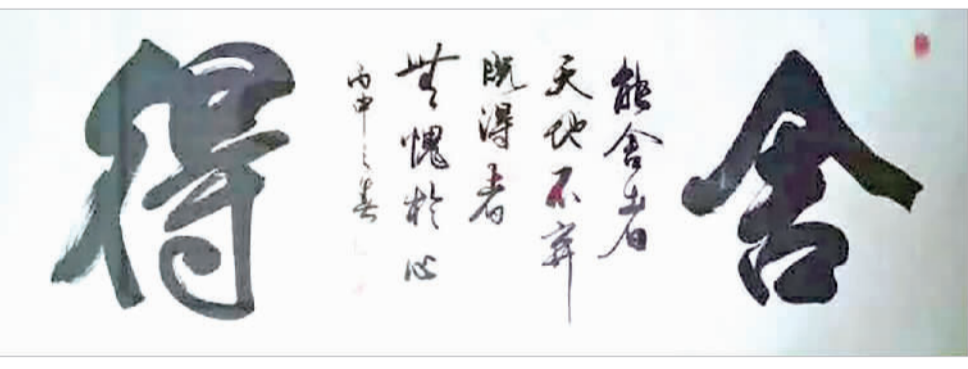 舍
能舍者
天地不弃
既得者
無愧於心
丙申之春
得